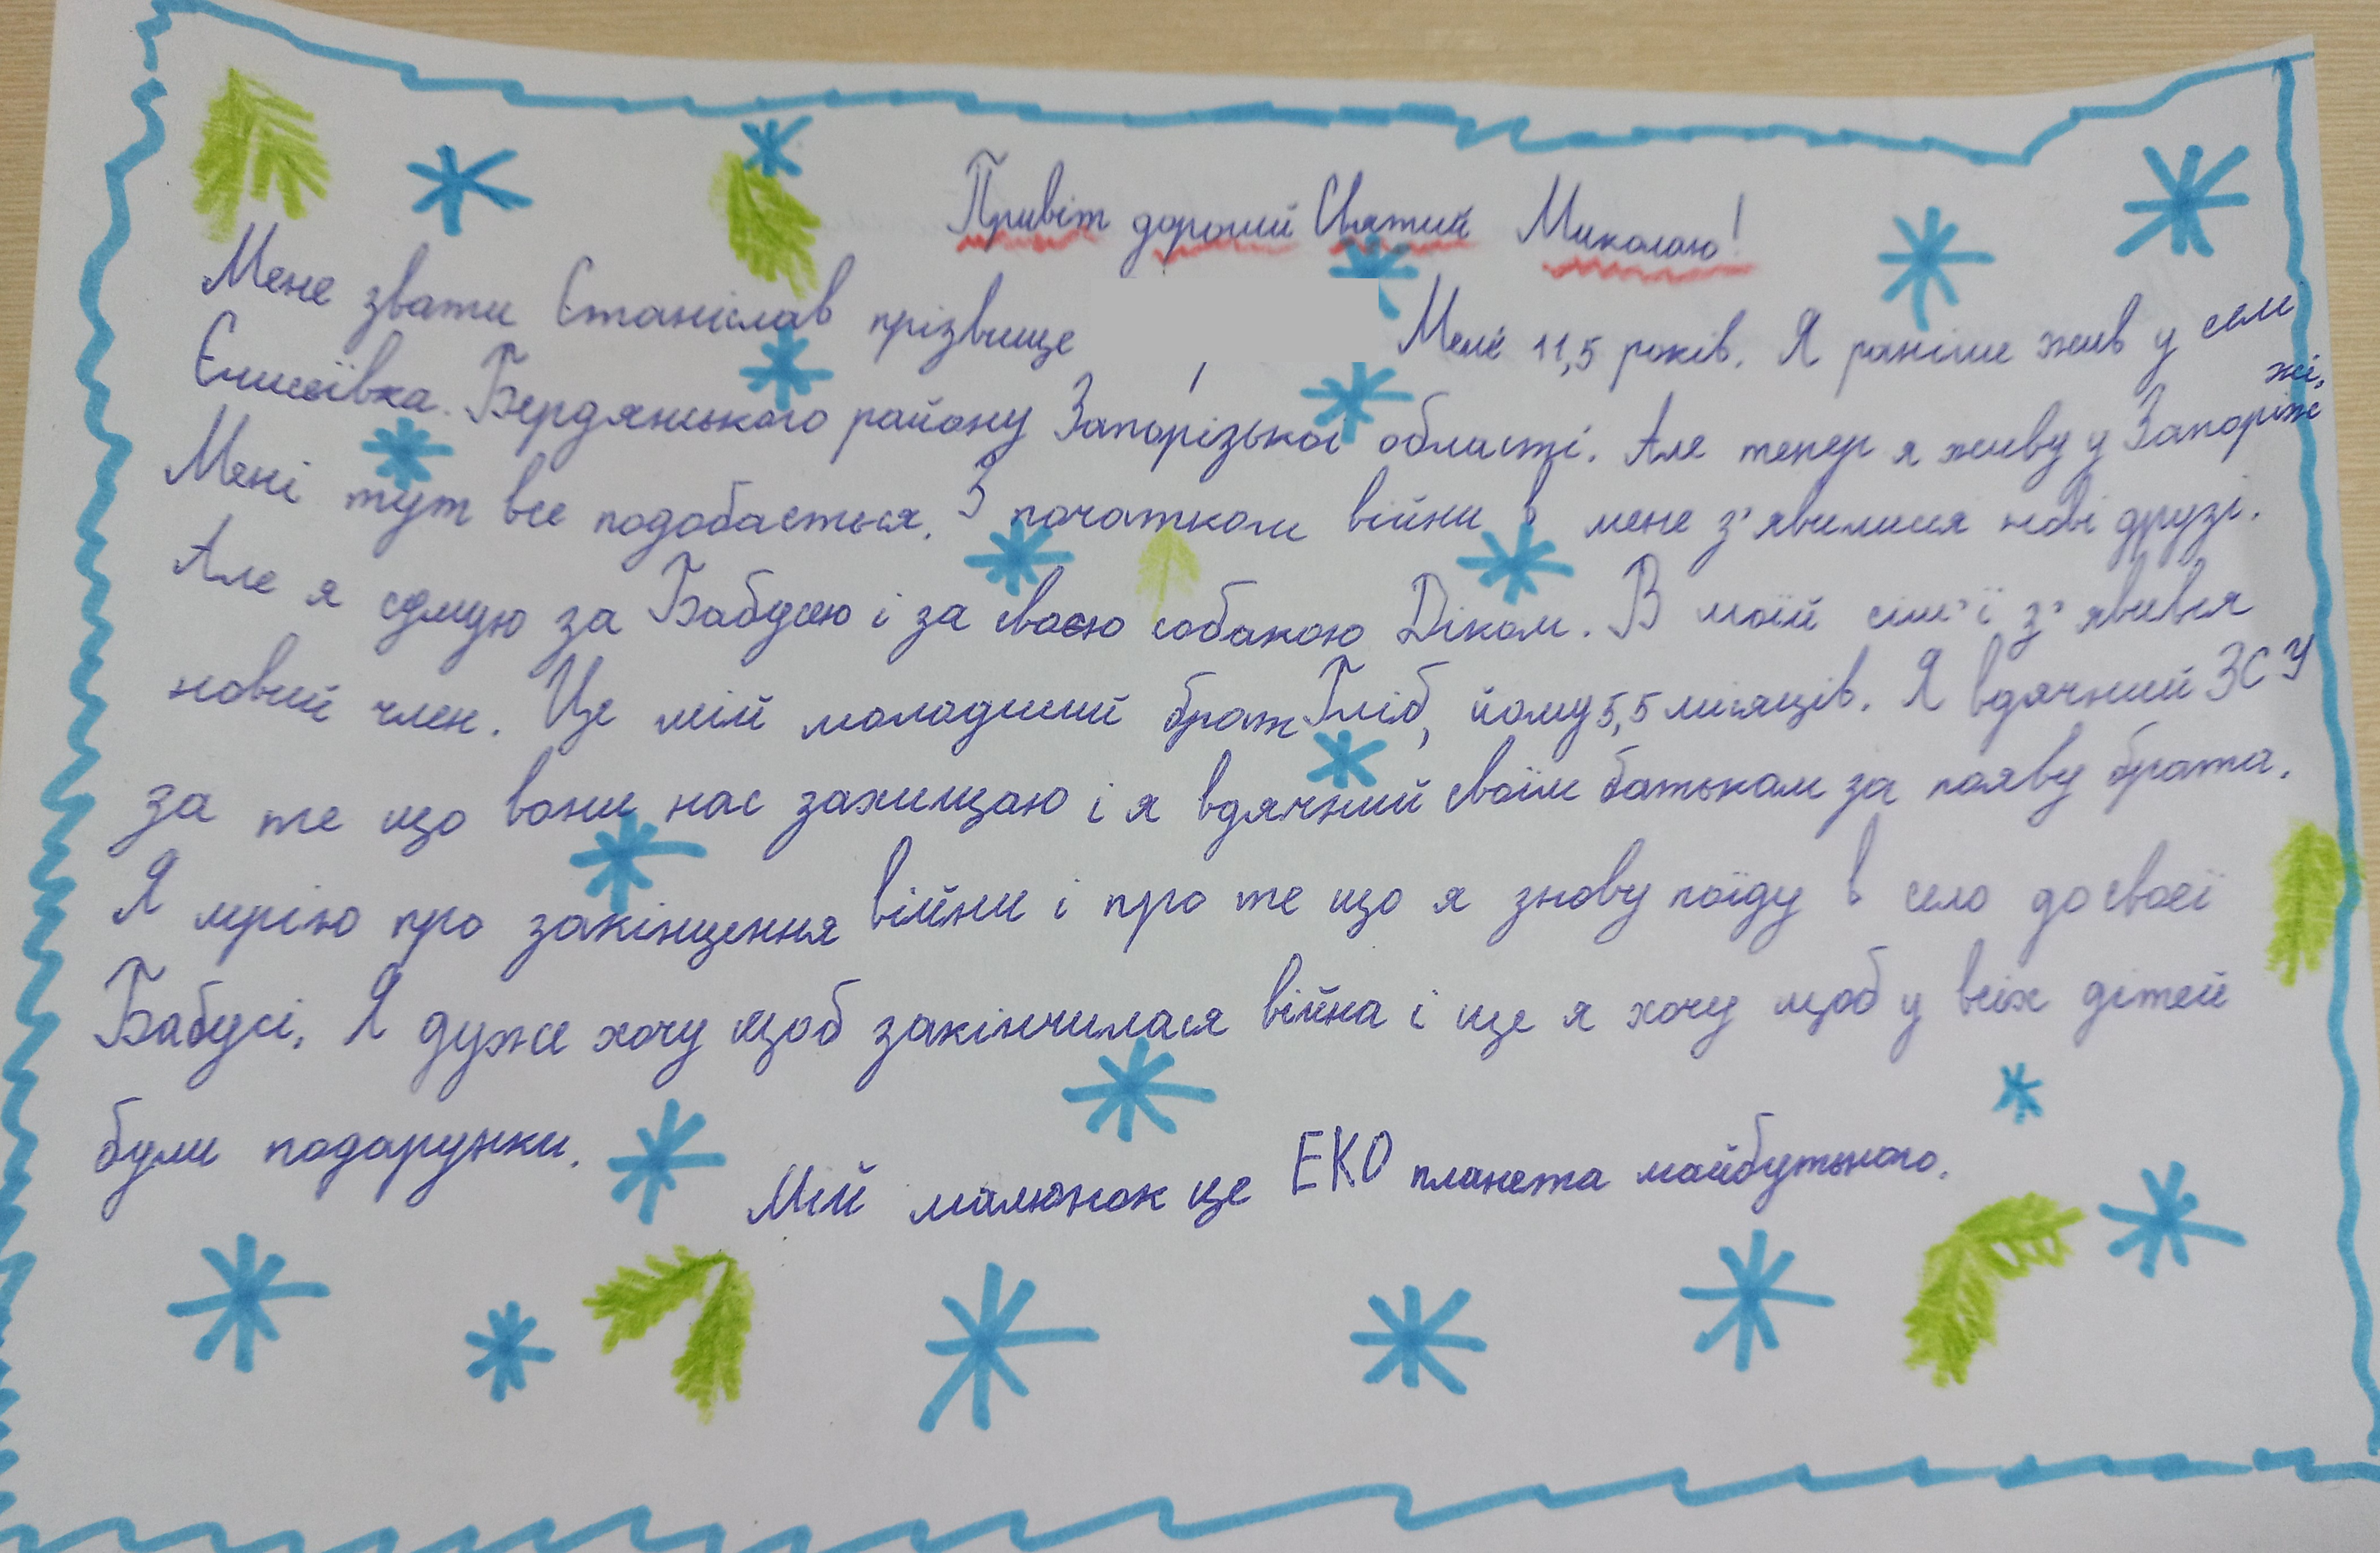 Привіт дорогий Святий Миколаю!
Мене звати Станіслав прізвище Мене 11,5 років. Я раніше жив у селі
Єлисеївка. Бердянського району Запорізької області. Але тепер я живу у Запоріж
жі.
Мені тут все подобається. З початком війни в мене з'явилися нові друзі.
Але я сумую за Бабусею і за своєю собакою Діком. В моїй сім'ї з'явився
новий член. Це мій молодший брат Гліб, йому 5,5 місяців. Я вдячний ЗСУ
за те що вони нас захищаю і я вдячний своїм батькам за появу брата.
Я мрію про закінцення війни і про те що я знову поїду в село до своєї
Бабусі. Я дуже хочу щоб закінчилася війна і ще я хочу щоб у всіх дітей
були подарунки.
Мій малюнок це ЕКО планета майбутнього.